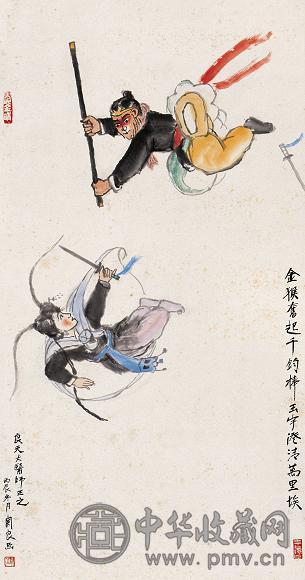 金猴奮起千鈞棒玉宇澄清萬里埃
良天大醫師正之
丙辰 月關良畫
中华收藏网
www.pmv.cn